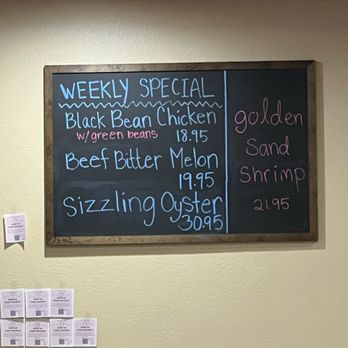 WEEKLY SPECIAL
Black Bean Chicken
w/green beans 18.95
Beef Bitter Melon
19.95
Sizzling Oyster
30.95
golden
sand
shrimp
21.95